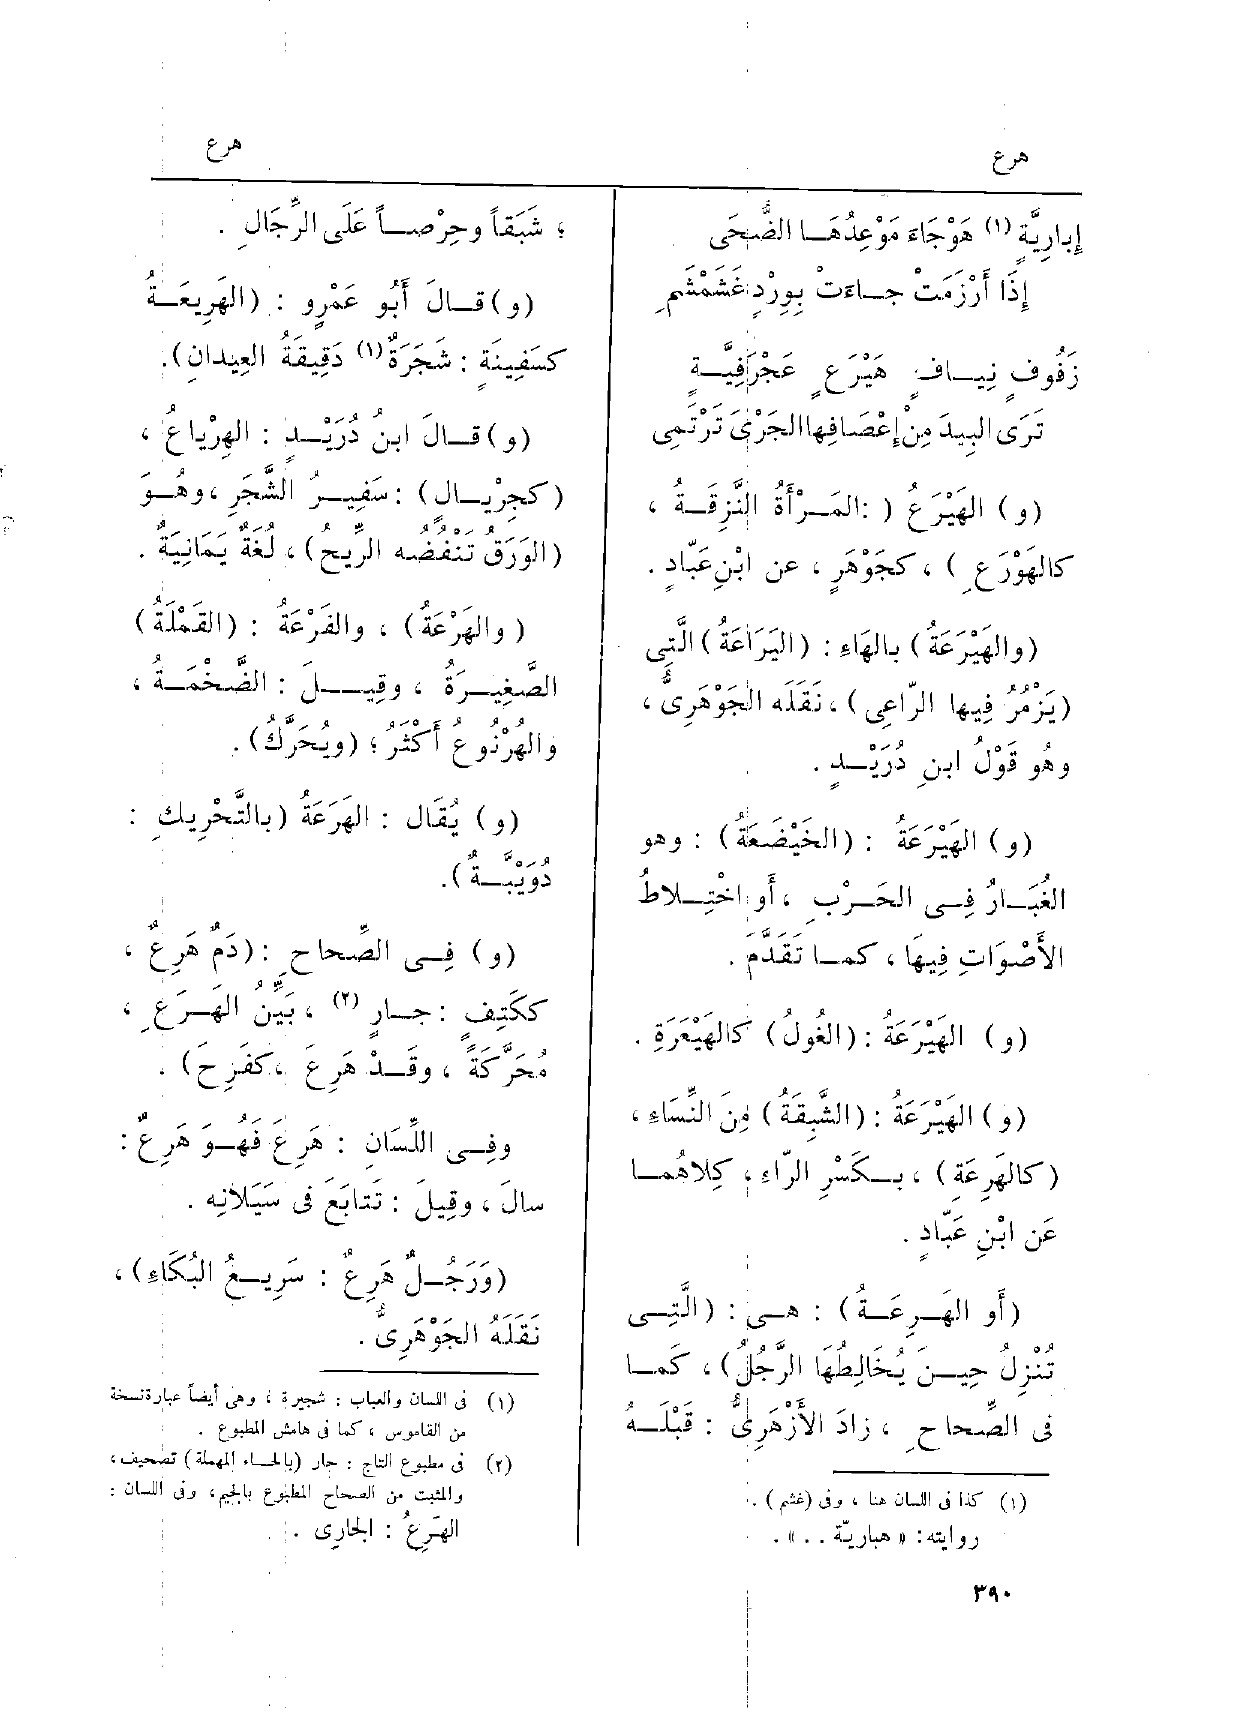 هرع
هرع
إبارِيَّةٍ (١) هَوْجَاءَ مَوْعِدُهَا الضُّحَى
إِذَا أَرْزَمَتْ جاءَتْ بِوِرْدٍ غَشَمْشَمِ
زَفُوفٍ نِيافٍ هَيْرَعٍ عَجْرَفِيَّةٍ
تَرَى البِيدَ مِنْ إِعْصَافِها الجَرْىَ تَرْتَمِى
(و) الهَيْرَعُ (: المَرْأَةُ النَّزِقَةُ ،
كالهَوْرَعِ ) ، كجَوْهَرٍ ، عن ابْنِ عَبّادٍ .
(والهَيْرَعَةُ) بالهَاءِ : (اليَرَاعَةُ) الَّتِى
(يَزْمُرُ فِيها الرّاعِى) ، نَقَلَه الجَوْهَرِىُّ ،
وهُو قَوْلُ ابنِ دُرَيْدٍ .
(و) الهَيْرَعَةُ : (الخَيْضَعَةُ) : وهو
الغُبَارُ فِى الحَرْبِ ، أَو اخْتِلاطُ
الأَصْوَاتِ فِيهَا ، كما تَقَدَّمَ .
(و) الهَيْرَعَةُ : (الغُولُ) كالهَيْعَرَةِ .
(و) الهَيْرَعَةُ : (الشَّبِقَةُ) مِنَ النِّسَاءِ ،
(كالهَرِعَةِ) ، بكَسْرِ الرّاءِ ، كِلاهُما
عَن ابْنِ عَبّادٍ .
(أَو الهَرِعَةُ) : هى : (الَّتِى
تُنْزِلُ حِينَ يُخَالِطُهَا الرَّجُلُ) ، كَما
فى الصِّحاحِ ، زادَ الأَزْهَرِىُّ : قَبْلَهُ
(١) كذا فى اللسان هنا ، وفى (غشم) .
روايته : « هباريّة . . » .
، شَبَقاً وحِرْصاً عَلَى الرِّجَالِ .
(و) قالَ أَبُو عَمْرٍو : (الهَرِيعَةُ
كسَفِينَةٍ : شَجَرَةٌ (١) دَقِيقَةُ العِيدانِ).
(و) قالَ ابنُ دُرَيْدٍ : الهِرْياعُ ،
(كجِرْيالٍ) : سَفِيرُ الشَّجَرِ ، وهُوَ
(الوَرَقُ تَنْفُضُه الرِّيحُ) ، لُغَةٌ يَمَانِيَةٌ .
(والهَرْعَةُ) ، والفَرْعَةُ : (القَمْلَةُ)
الصَّغِيرَةُ ، وقِيلَ : الضَّخْمَةُ ،
والهُرْنُوعُ أَكْثَرُ ؛ (ويُحَرَّكُ) .
(و) يُقَال : الهَرَعَةُ (بالتَّحْرِيكِ :
دُوَيْبَّةٌ).
(و) فِى الصِّحاحِ : (دَمٌ هَرِعٌ ،
ككَتِفٍ : جارٍ (٢) ، بَيِّنُ الهَرَعِ ،
مُحَرَّكَةً ، وقَدْ هَرِعَ ، كفَرِحَ) .
وفِى اللِّسَانِ : هَرِعَ فَهُوَ هَرِعٌ :
سالَ ، وقِيلَ : تَتابَعَ فى سَيَلانِه .
(وَرَجُلٌ هَرِعٌ : سَرِيعُ البُكَاءِ) ،
نَقَلَهُ الجَوْهَرِىُّ .
(١) فى اللسان والعباب : شجيرة ، وهى أيضاً عبارة نسخة
من القاموس ، كما فى هامش المطبوع .
(٢) فى مطبوع التاج : حار (بالحاء المهملة) تصحيف ،
والمثبت من الصحاح المطبوع بالجيم ، وفى اللسان :
الهَرِعُ : الجارى .
٣٩٠